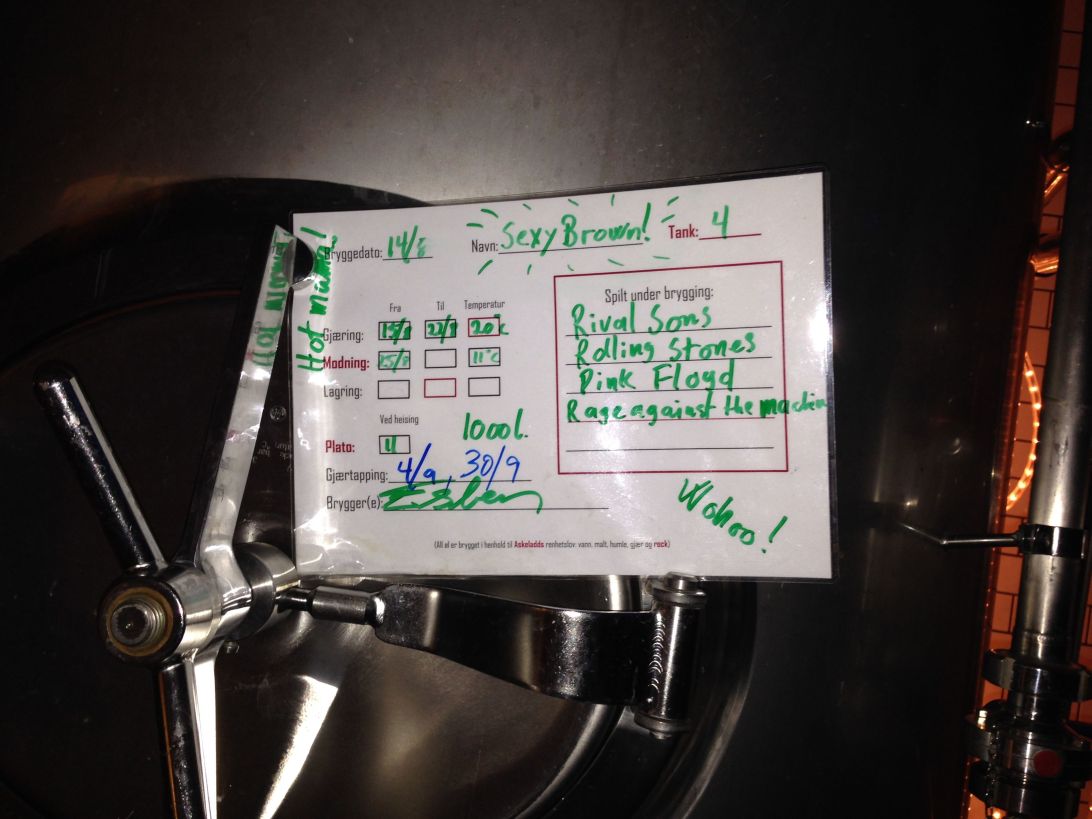 Bryggedato: 14/8 Navn: Sexy Brown! Tank: 4
Hot mama!
Hot mama
Fra Til Temperatur
Gjæring: 15/8 22/8 20°c
Modning: 25/8 11°c
Lagring:
Ved heising
Plato: 11 1000l.
Gjærtapping: 4/9, 30/9
Brygger(e): Esben
Spilt under brygging:
Rival Sons
Rolling Stones
Pink Floyd
Rage against the machine
Wohoo!
(All øl er brygget i henhold til Askeladds renhetslov: vann, malt, humle, gjær og rock)